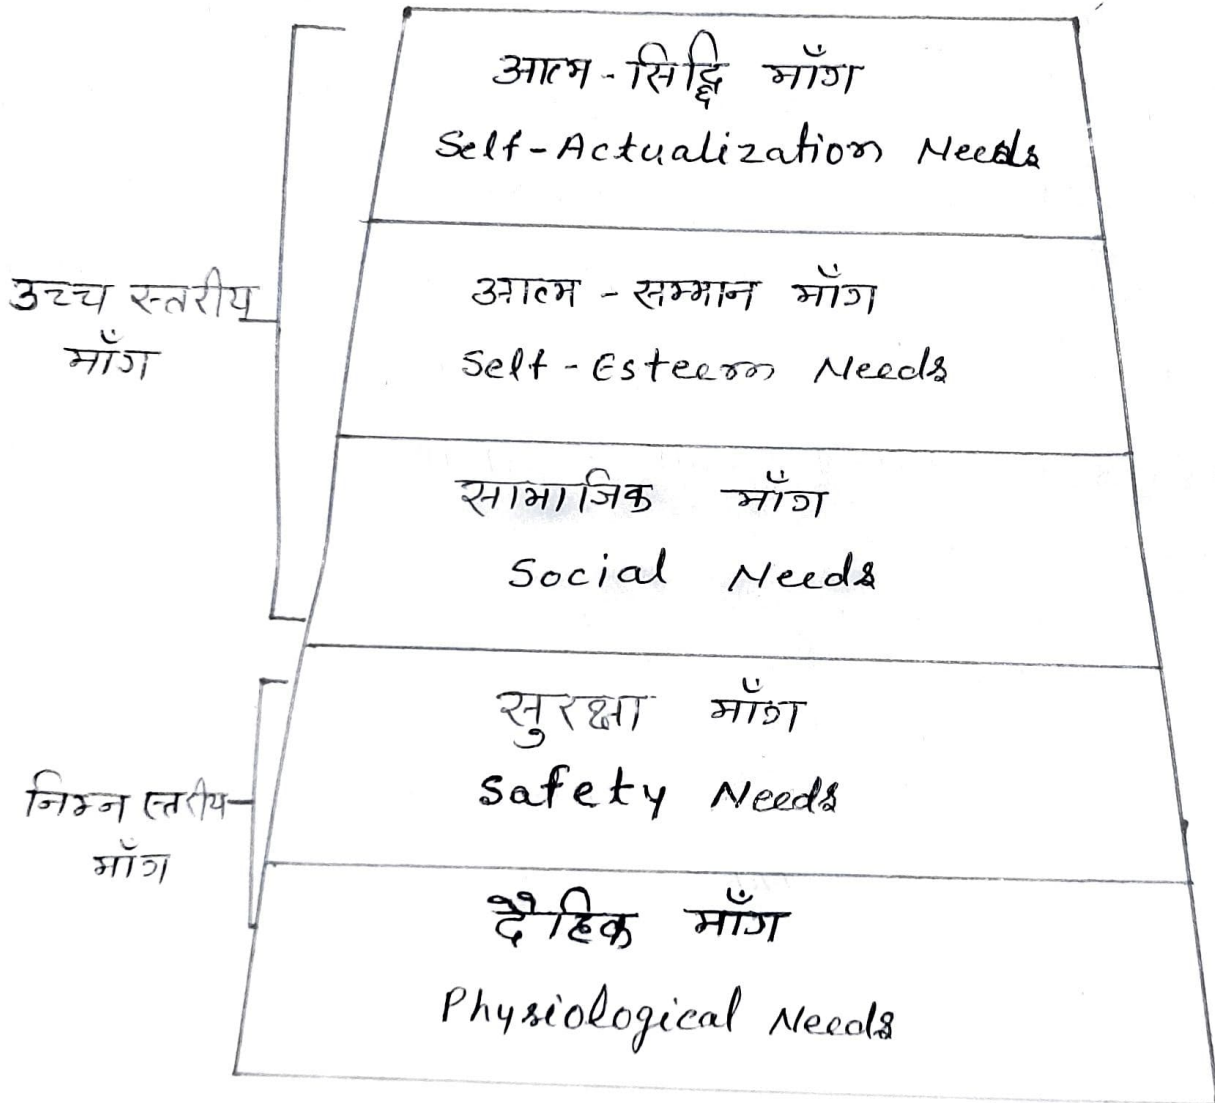 आत्म-सिद्धि माँग
Self-Actualization Needs
उच्च स्तरीय
माँग
आत्म-सम्मान माँग
Self-Esteem Needs
सामाजिक माँग
Social Needs
सुरक्षा माँग
Safety Needs
निम्न स्तरीय
माँग
दैहिक माँग
Physiological Needs